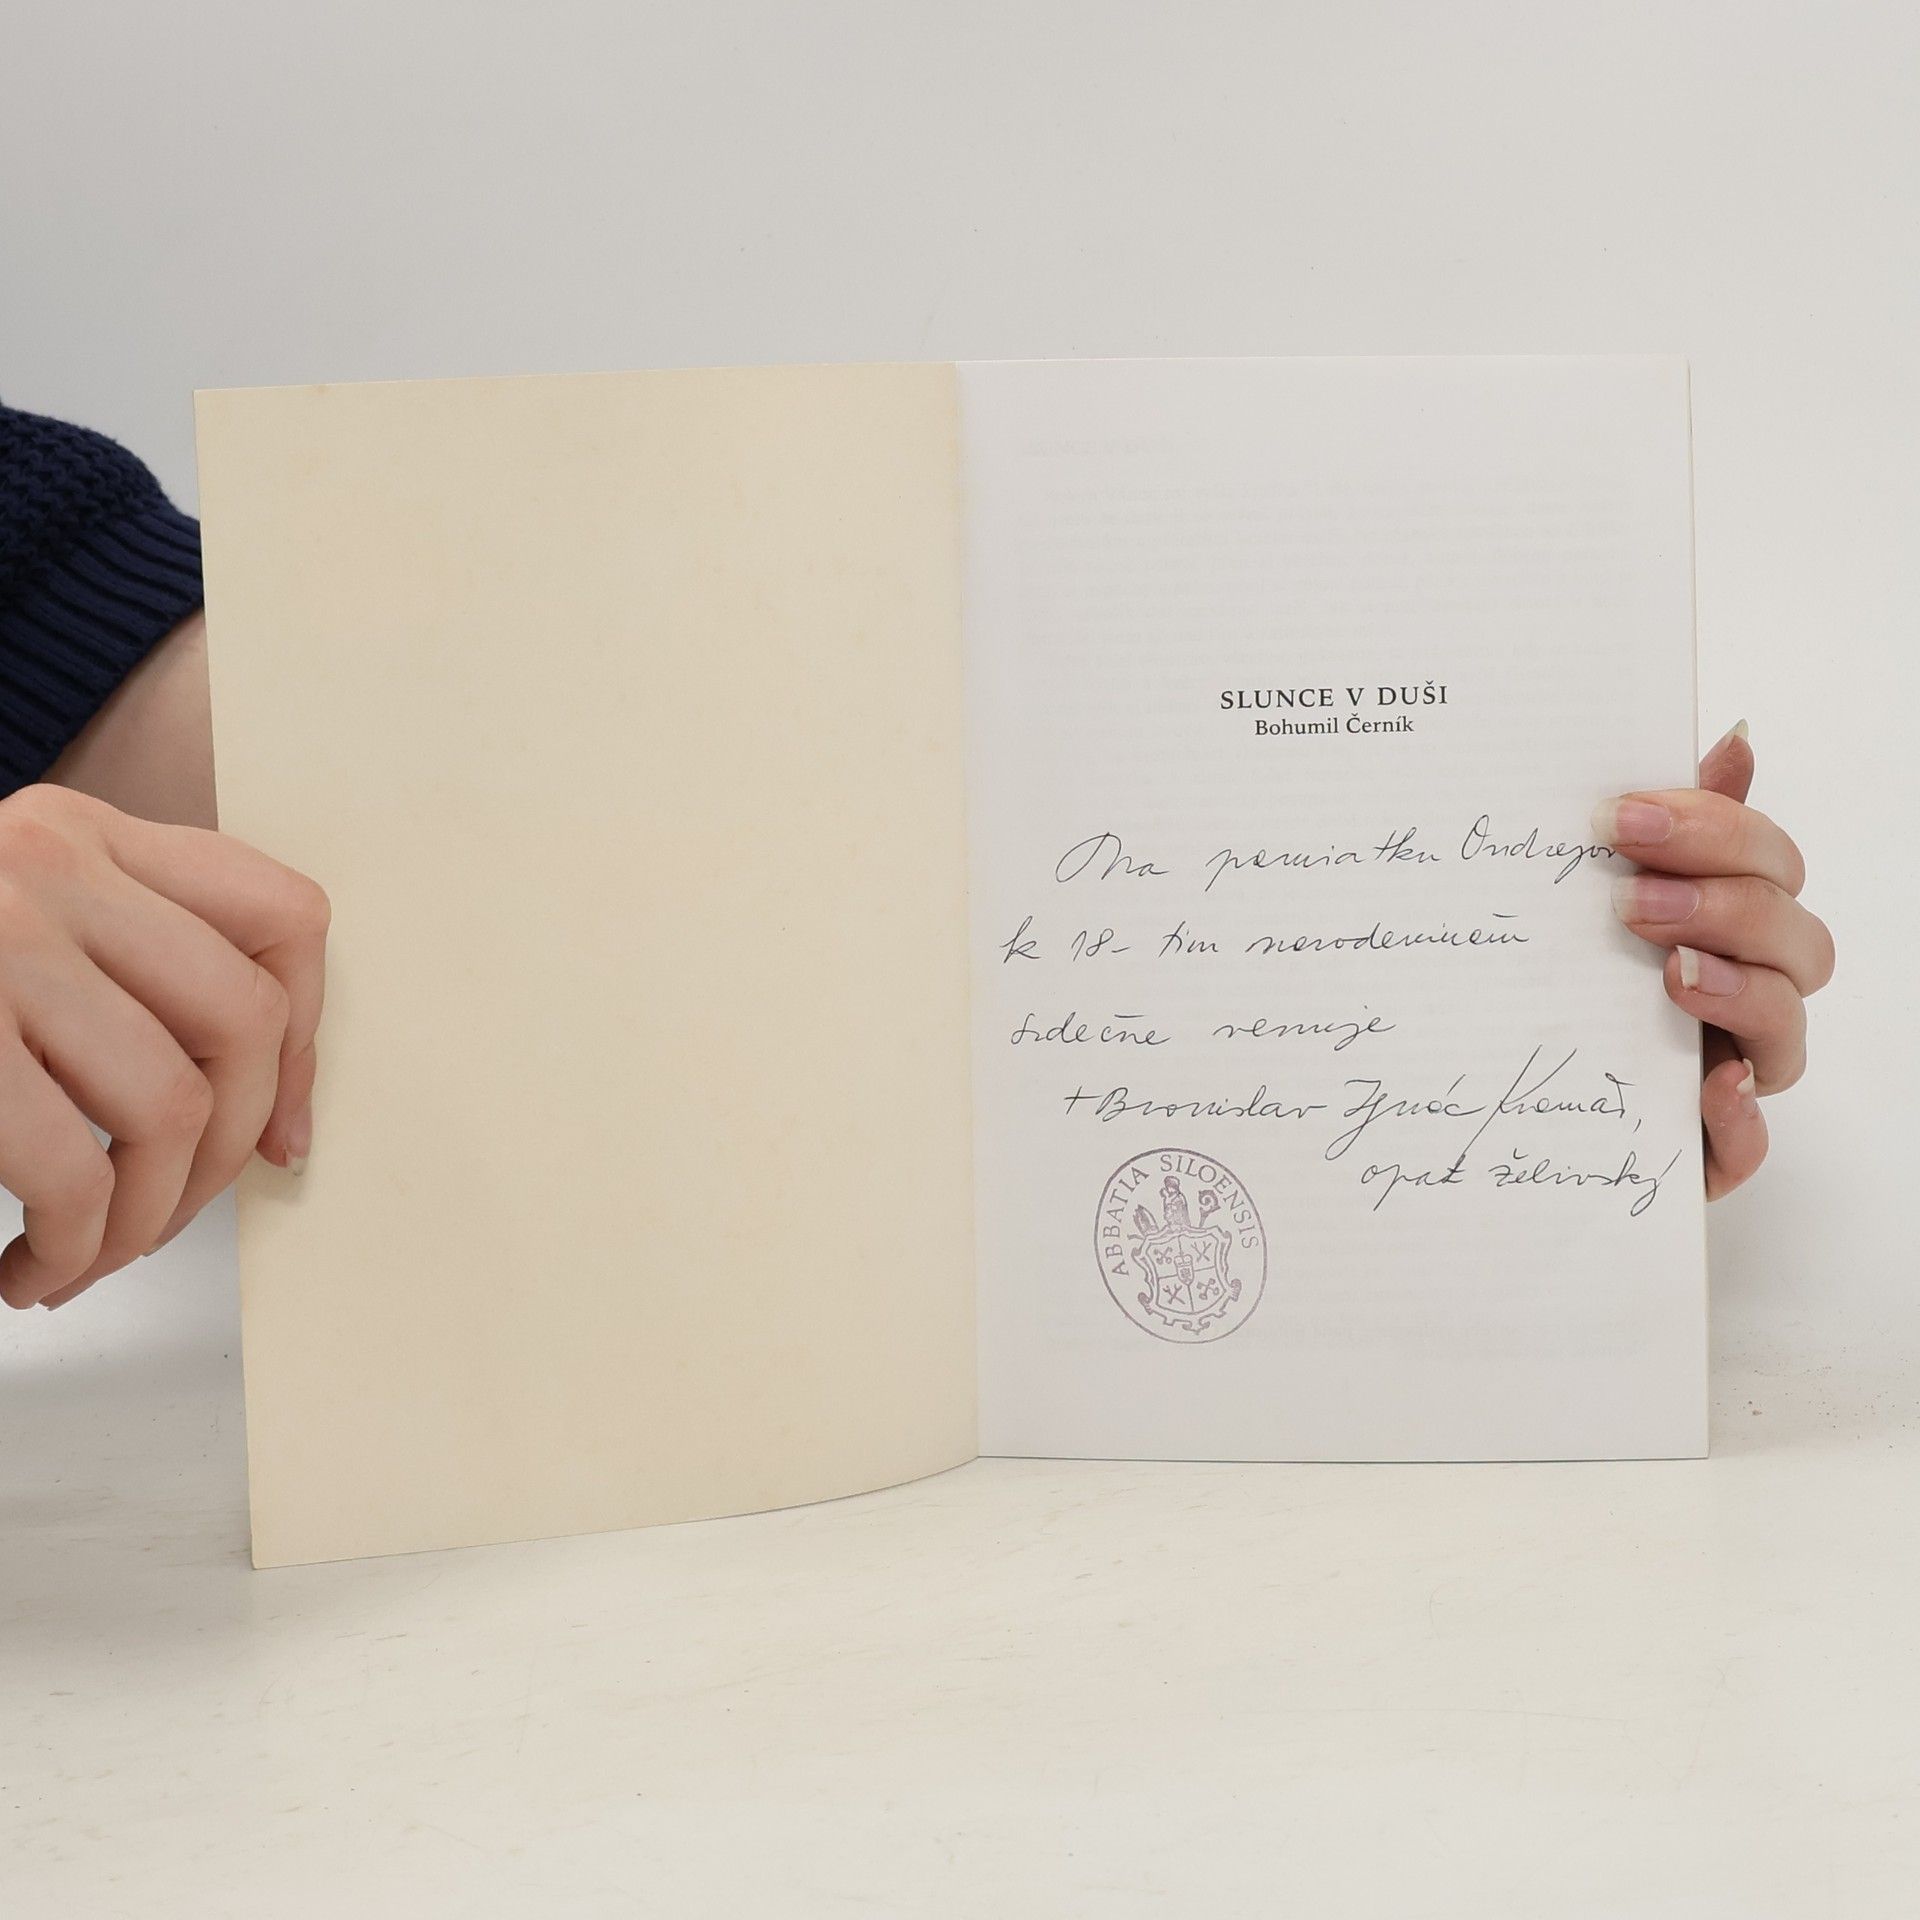 SLUNCE V DUŠI
Bohumil Černík
Na pamiatku Ondrejov
k 18-tim narodeninám
srdečne venuje
+Bronislav Ignác Kramár,
opat želivský
ABBATIA SILOENSIS